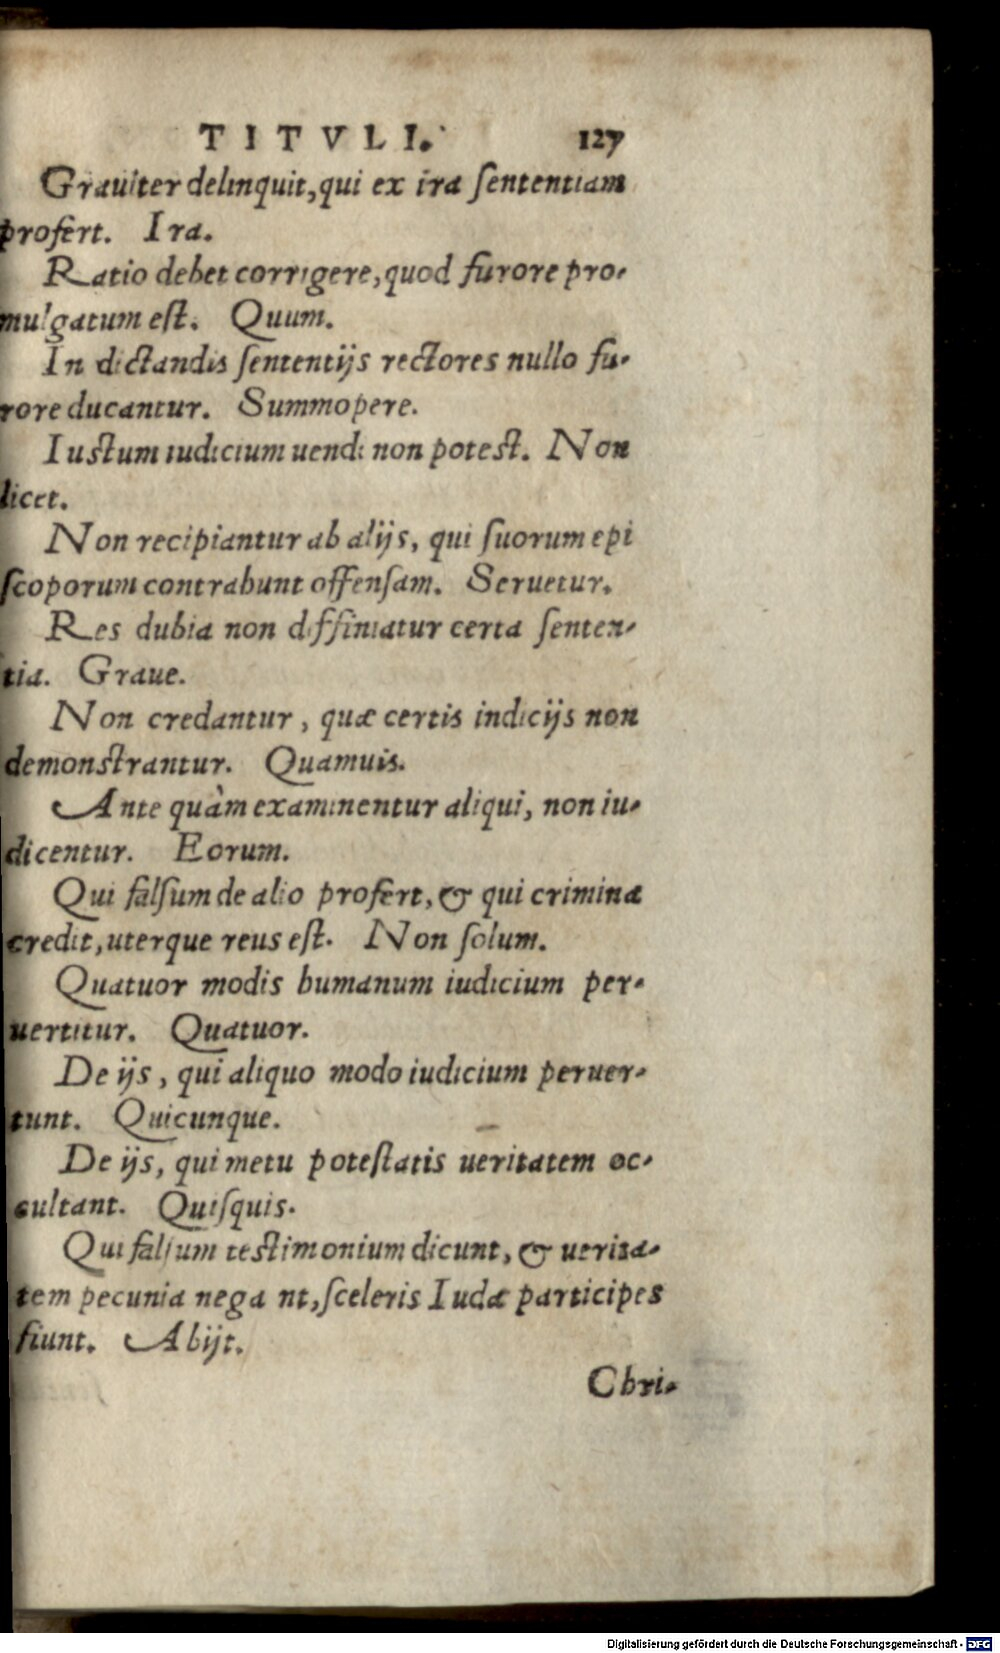 TITVLI. 127
Grauiter delinquit, qui ex ira ſententiam
profert. Ira.
Ratio debet corrigere, quod furore pro-
mulgatum eſt. Quum.
In dictandis ſententijs rectores nullo fu-
rore ducantur. Summopere.
Iustum iudicium uendi non potest. Non
licet.
Non recipiantur ab alijs, qui ſuorum epi
ſcoporum contrahunt offenſam. Seruetur.
Res dubia non diffiniatur certa ſenten-
tia. Graue.
Non credantur, quæ certis indicijs non
demonstrantur. Quamuis.
Ante quàm examinentur aliqui, non iu-
dicentur. Eorum.
Qui falſum de alio profert, & qui crimina
credit, uterque reus eſt. Non ſolum.
Quatuor modis humanum iudicium per-
uertitur. Quatuor.
De ijs, qui aliquo modo iudicium peruer-
tunt. Quicunque.
De ijs, qui metu poteſtatis ueritatem oc-
cultant. Quiſquis.
Qui falſum testimonium dicunt, & uerita-
tem pecunia nega nt, ſceleris Iudæ participes
fiunt. Abijt.
Chri-
Digitalisierung gefördert durch die Deutsche Forschungsgemeinschaft - DFG